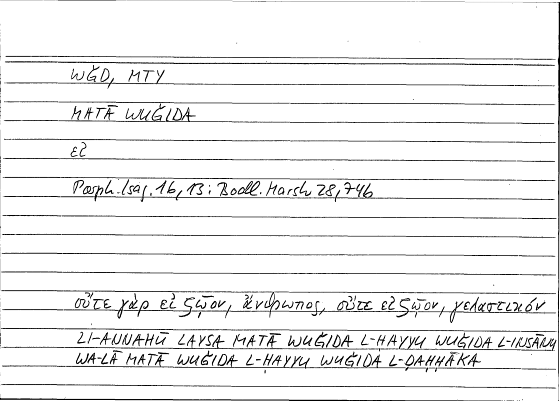 WǦD, MTY
MATĀ WUǦIDA
εἰ
Porph. Isag. 16, 13: Bodl. Marsh 28, 746
οὔτε γὰρ εἰ ζῷον, ἄνθρωπος, οὔτε εἰ ζῷον, γελαστικόν
LI-ANNAHŪ LAYSA MATĀ WUǦIDA L-ḤAYYU WUǦIDA L-INSĀNU
WA-LĀ MATĀ WUǦIDA L-ḤAYYU WUǦIDA L-ḌAḤḤĀKA